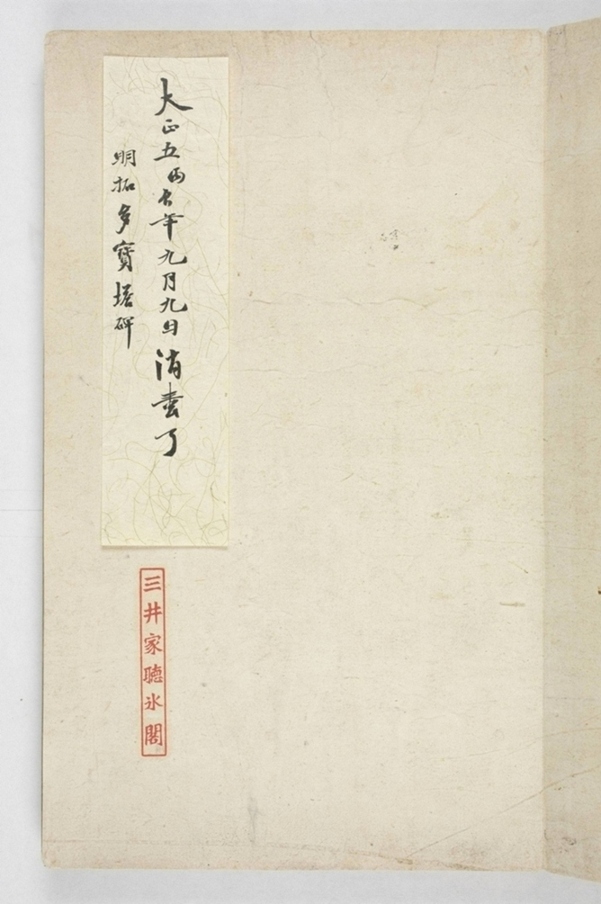 大正五丙辰年九月九日消了
明拓多寶塔碑
三井家聴氷閣